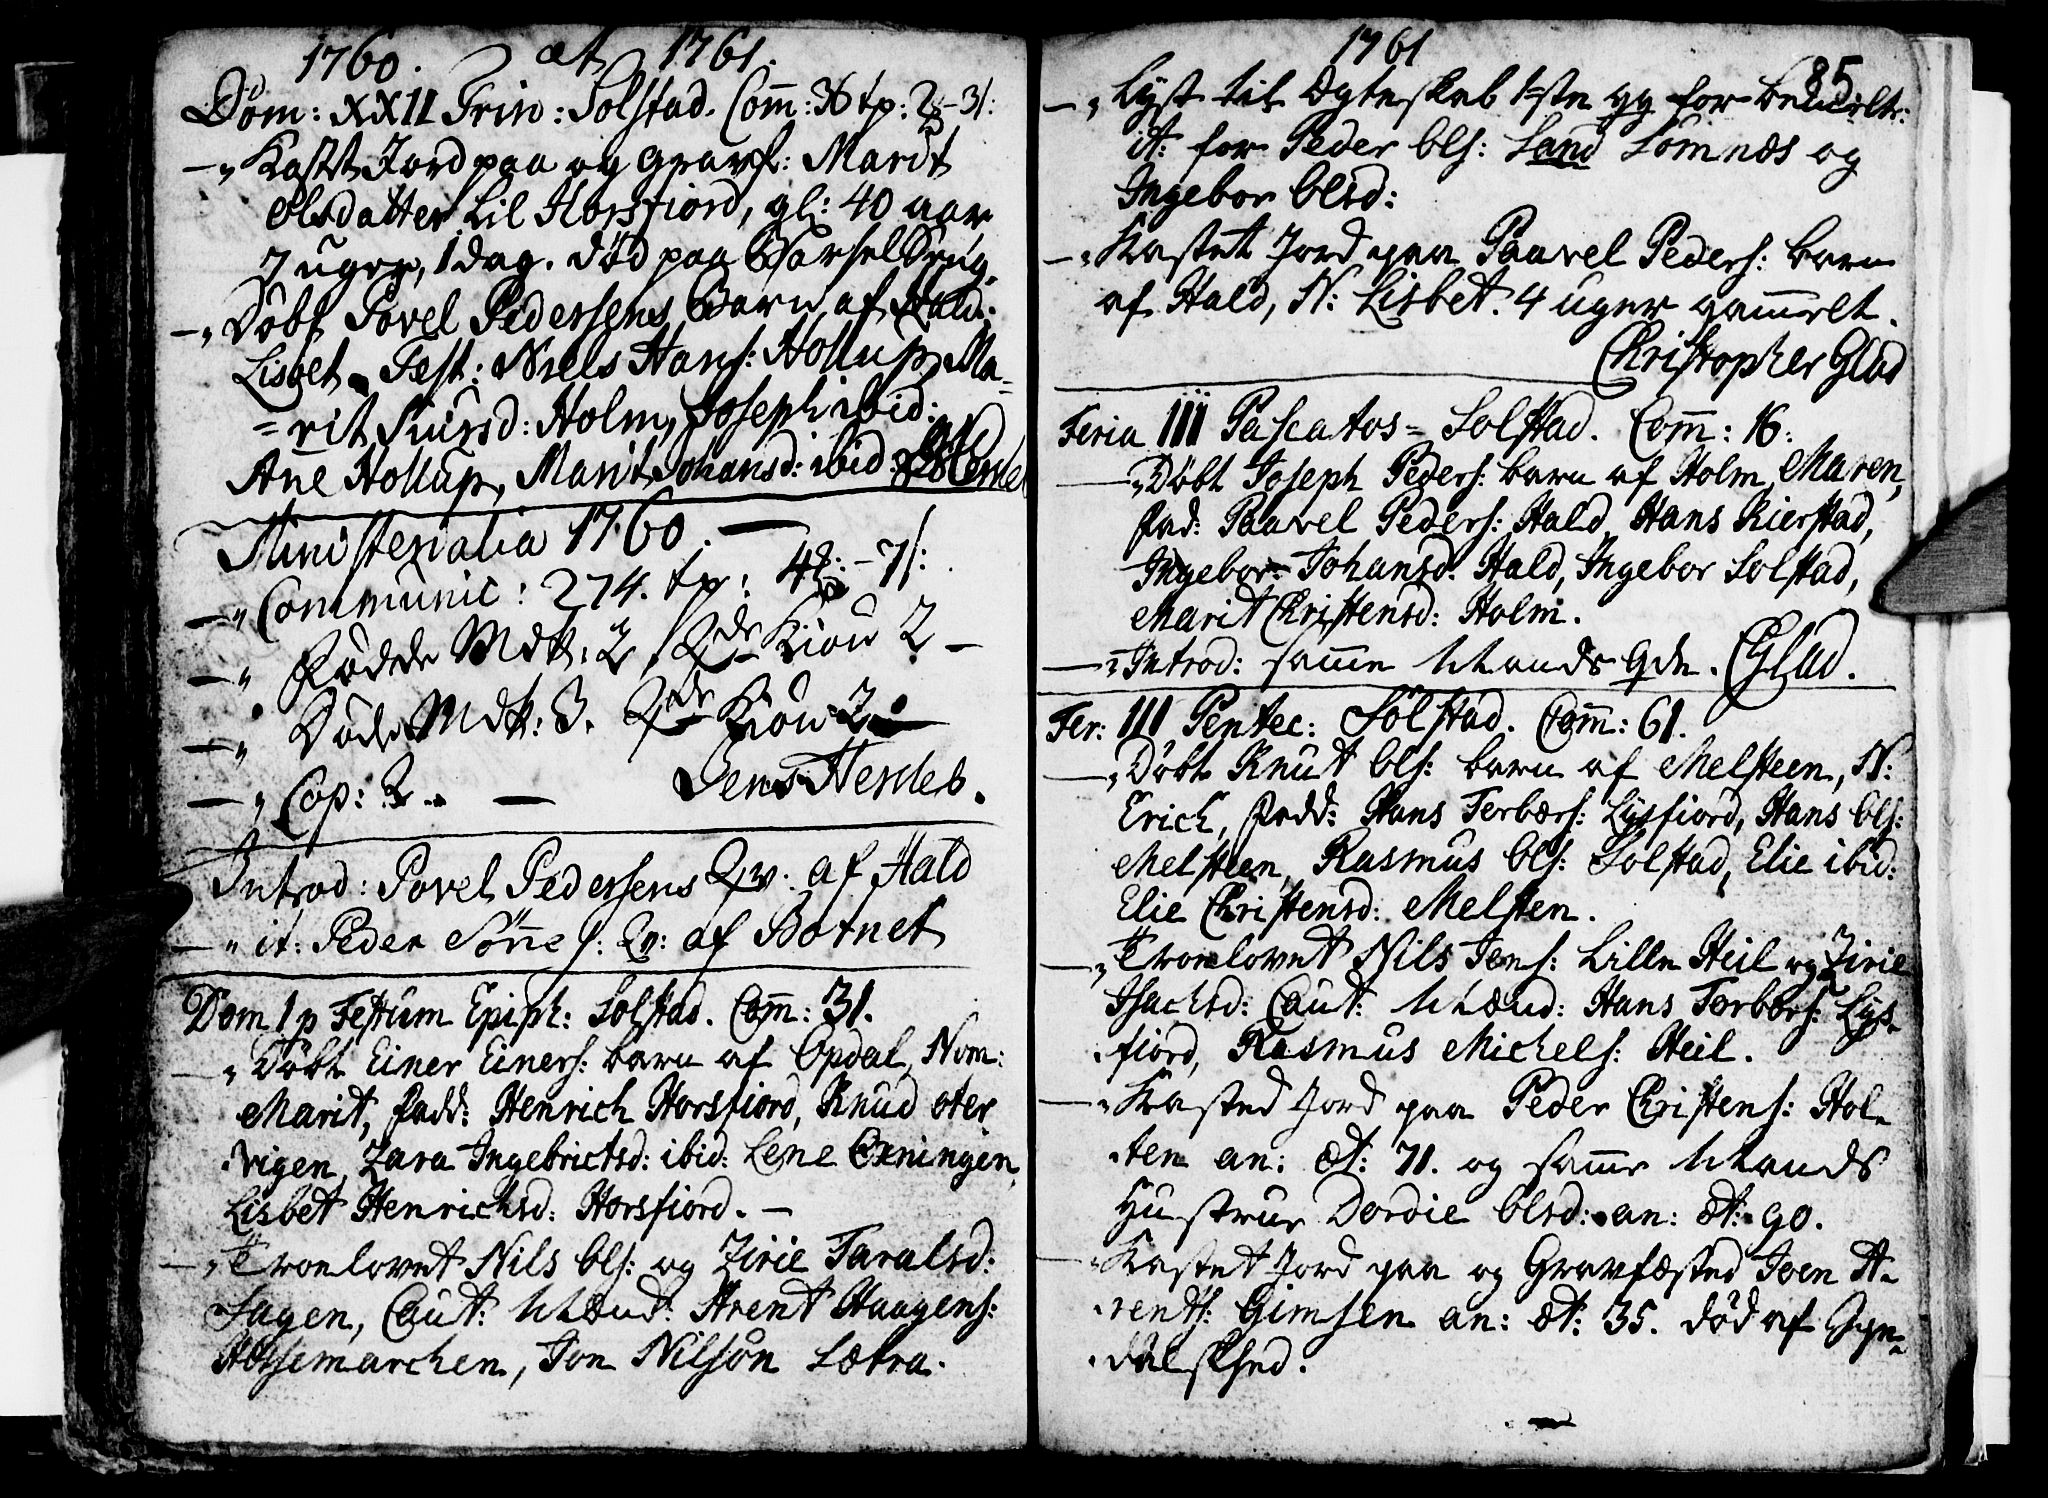 1760. et 1761.
Dom: XXII Trin: Solstad. Comm: 36 tp: 2 - 3 s:
-„ Kastt Jord paa og Gravf: Mardt
Olsdatter Lil Horsfiord, gl: 40 aar
7 uger, 1 dag. død paa Barselseng.
-„ Döbt Povel Pedersens Barn af Hald:
Lisbet. Test: Niels Hans: Hollup, Ma=
=rit Siursd: Holm, Joseph ibid:
Ane Hollup, Marit Johansd: ibid:
Ministerialia 1760. -
-„ Communic: 274. tp: 4 - 7 s:
-„ Födde Mdk: 2, Qde Kiön 2 -
-„ Döde Mdk: 3. Qde Kiön: 2.
-„ Cop: 3. - Jens Hersleb.
Introd: Povel Pedersens Qv: af Hald
-„ it: Peder Sönnes: Qv: af Botnet
Dom 1 p Festum Epiph: Solstad. Comm: 31.
-„ Döbt Einer Einers: barn af Opdal, Nom:
Marit, fadd: Henrich Horsfiord, Knud oter
vigen, Zara Ingebrictsd: ibid: Lene Exningen,
Lisbet Henrichsd: Horsfiord. -
-„ Troelovet Nils Ols: og Zirie Taralsd:
Sagen, Caut: Mænd: Arent Haagens:
Horsemarchen, Jon Nilsön Lætra.
1761
85
-„ Lyst til Egteskab 1ste gg for
it: for Peder Ols: Sand Sömnæs og
Ingebor Olsd:
-„ Kastet Jord paa Paavel Peders: barn
af Hald, N: Lisbet. 4 uger gammelt.
Christopher Glad
Feria III Pascatos = Solstad. Comm: 16:
-„ Döbt Joseph Peders: barn af Holm, Maren,
fad: Paavel Peders: Hald, Hans Kierstad,
Ingebor Johansd: Hald, Ingebor Solstad,
Marit Christensd: Holm.
-„ Introd: samme Mands Qde. CGlad.
Fer: III Pentec: Solstad. Comm: 61.
-„ Döbt Knut Ols: barn af Melsteen, N:
Erich, fadd: Hans Torbers: Lysfiord, Hans Ols:
Melsteen, Rasmus Ols: Solstad, Elie ibid:
Elie Christensd: Melsten.
-„ Troelovet Nils Jens: Lille Heil og Zirie
Isachsd: Caut: Mænd: Hans Torbers: Lys-
fiord, Rasmus Michels: Heil.
-„ Kasted Jord paa Peder Christens: Hol-
ten an: æt: 71. og samme Mands
Hustrue Dordie Olsd: an: æt: 90.
-„ Kastet Jord paa og Gravfæsted Joen A-
rents: Gimsen an: æt: 35. död af